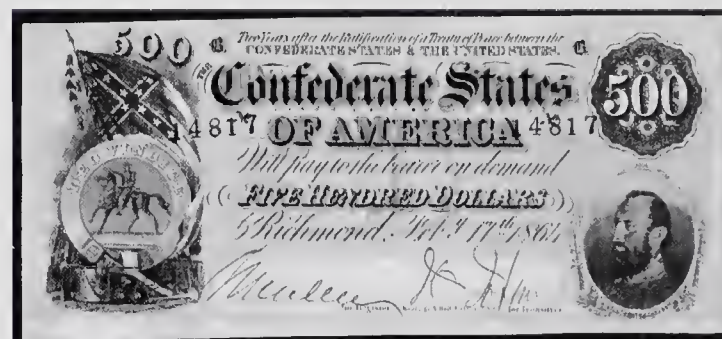 500
B. Two Years after the Ratification of a Treaty of Peace between the B.
CONFEDERATE STATES & THE UNITED STATES.
THE
Confederate States
500
14817 OF AMERICA 14817
Will pay to the bearer on demand
FIVE HUNDRED DOLLARS
Richmond, Feb.y 17th 1864
for Register
for Treasurer